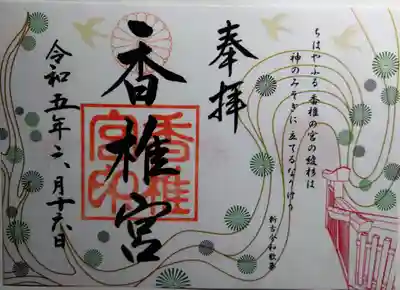 奉拝
ちはやふる 香椎の宮の綾杉は
神のみそぎに立てるなりけり
新古今和歌集
香椎宮
香椎宮印
令和五年二月十六日